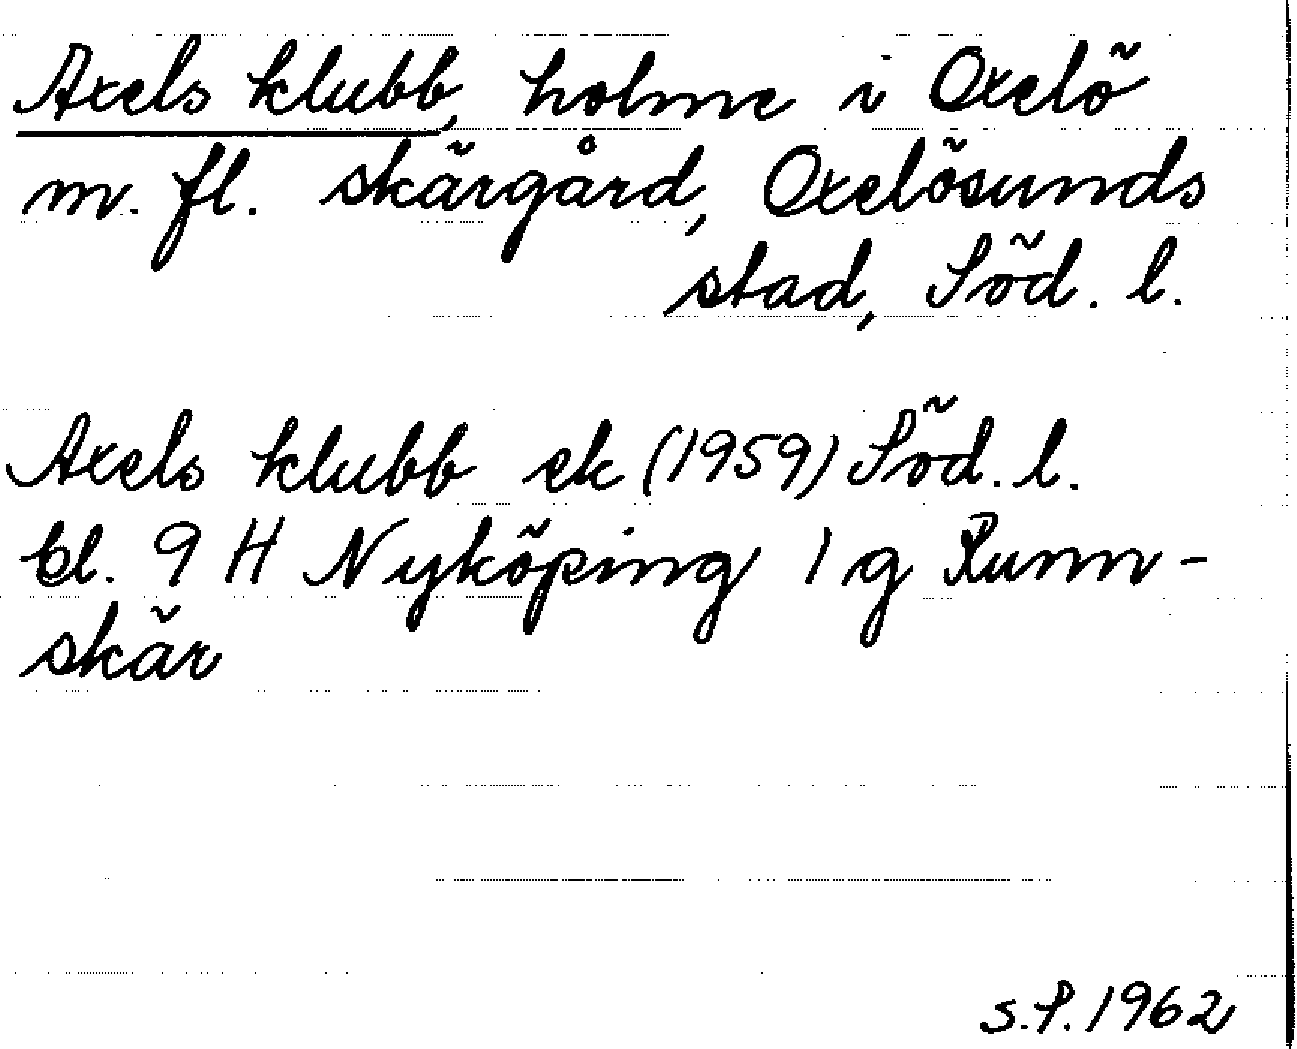 Axels klubb, holme i Oxelö
m. fl. skärgård, Oxelösunds
stad, Söd. l.
Axels klubb ek (1959) Söd. l.
bl. 9 H Nyköping 1 g Runn-
skär
S.P. 1962